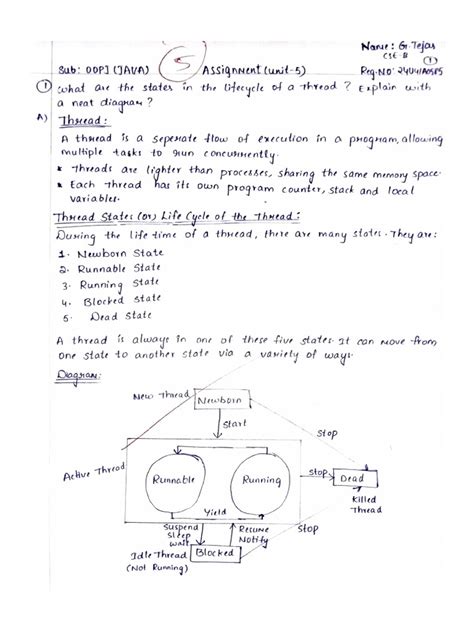 Name: G.Tejas
CSE-B
①
Sub: OOPJ (JAVA) 5 Assignment (unit-5) Reg.No: 24U41A0585
① what are the states in the lifecycle of a thread? Explain with
a neat diagram?
A) Thread:
A thread is a seperate flow of execution in a program, allowing
multiple tasks to run concurrently.
* Threads are lighter than processes, sharing the same memory space.
* Each Thread has its own program counter, stack and local
variables.
Thread States (or) Life Cycle of the Thread:
During the life time of a thread, there are many states. They are:
1. Newborn State
2. Runnable State
3. Running State
4. Blocked State
5. Dead State
A thread is always in one of these five states. It can move from
one state to another state via a variety of ways.
Diagram:
New Thread Newborn
Start
Stop
Active Thread
Runnable Running
Stop Dead
Killed
Thread
Yield
Suspend
Sleep
Wait
Resume
Notify
Stop
Idle Thread
(Not Running)
Blocked